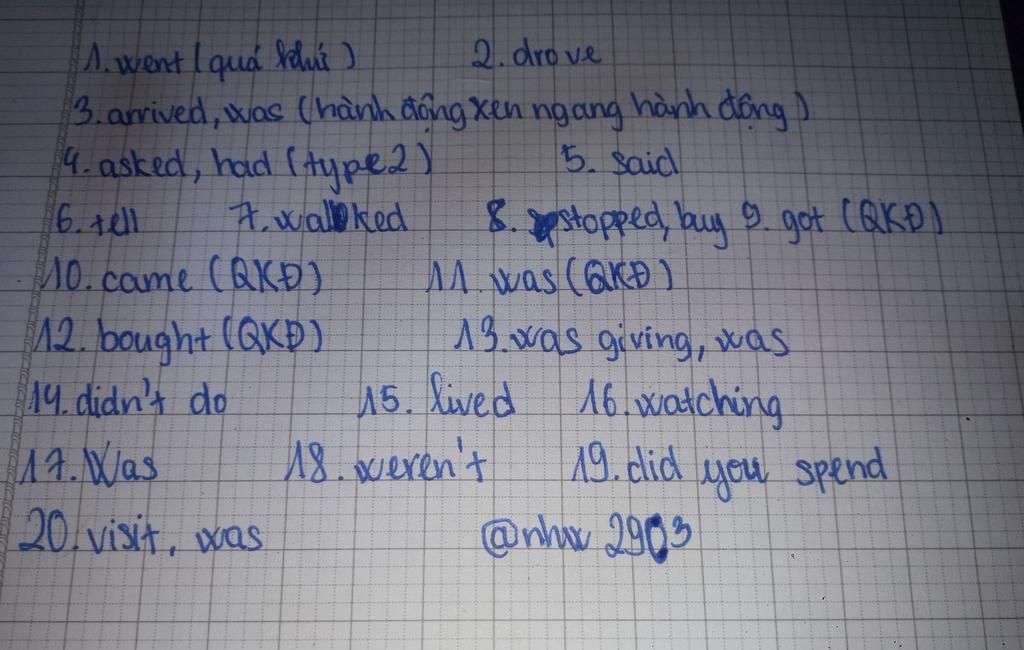 1. went (quá khứ) 2. drove
3. arrived, was (hành động xen ngang hành động)
4. asked, had (type 2) 5. said
6. tell 7. walked 8. stopped, buy 9. got (QKĐ)
10. came (QKĐ) 11. was (QKĐ)
12. bought (QKĐ) 13. was giving, was
14. didn't do 15. lived 16. watching
17. Was 18. weren't 19. did you spend
20. visit, was @nhux 2903